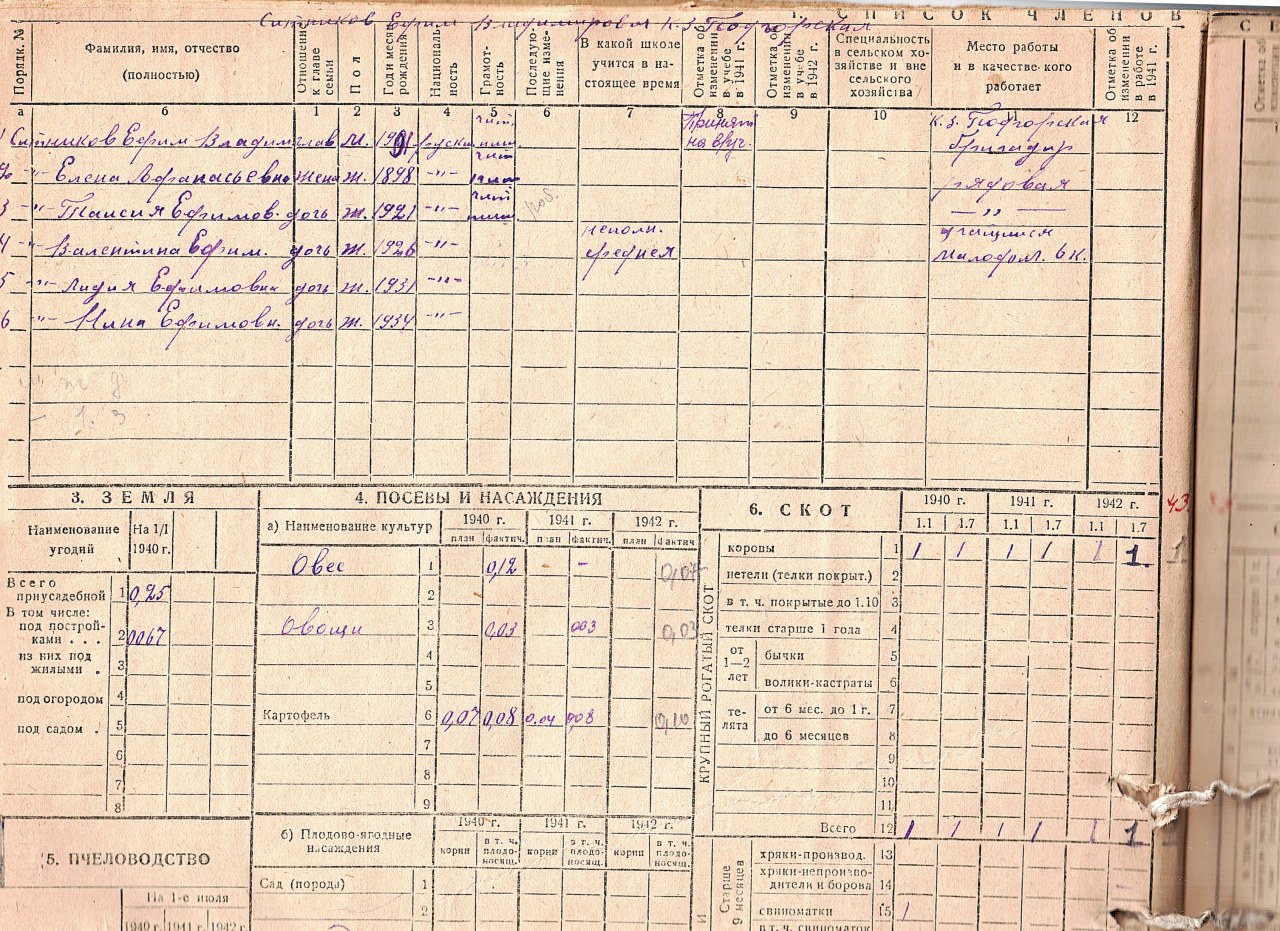 Ситников Ефим Владимирович к-з Подгорская
СПИСОК ЧЛЕНОВ
Порядк. №
Фамилия, имя, отчество
(полностью)
Отношение к главе семьи
Пол
Год и месяц рождения
Националь-ность
Грамот-ность
Последую-щие изме-нения
В какой школе учится в на-стоящее время
Отметка об изменении в учебе в 1941 г.
Отметка об изменении в учебе в 1942 г.
Специальность в сельском хо-зяйстве и вне сельского хозяйства
Место работы и в качестве кого работает
Отметка об изменении в работе в 1941 г.
а б 1 2 3 4 5 6 7 8 9 10 11 12
1 Ситников Ефим Владим глав м. русск Принят к-з Подгорская бригадир
2 -"- Елена Афанасьевна жена ж. 1898 -"- рядовая
3 -"- Таисия Ефимов. дочь ж. 1921 -"- — " —
4 -"- Валентина Ефим. дочь ж. 1926 -"- неполн. средняя учащийся
5 -"- Лидия Ефимовна дочь ж. 1931 -"-
6 -"- Нина Ефимовн. дочь ж. 1934 -"-
3. ЗЕМЛЯ
Наименование угодий
На 1/I 1940 г.
Всего приусадебной 1 0,25
В том числе:
под построй-ками . . . 2 0067
из них под жилыми . 3
под огородом 4
под садом . 5
6
7
8
5. ПЧЕЛОВОДСТВО
На 1-е июля
1940 г. 1941 г. 1942 г.
4. ПОСЕВЫ И НАСАЖДЕНИЯ
а) Наименование культур
1940 г. 1941 г. 1942 г.
план фактич. план фактич. план фактич.
Овес 1 0,12 - - 0,07
2
Овощи 3 0,03 003 0,03
4
5
Картофель 6 0,07 0,08 0.04 0,08 0,10
7
8
9
б) Плодово-ягодные насаждения
1940 г. 1941 г. 1942 г.
корни в т. ч. плодо-носящ. корни в т. ч. плодо-носящ. корни в т. ч. плодо-носящ.
Сад (порода) 1
2
6. СКОТ
1940 г. 1941 г. 1942 г.
1.1 1.7 1.1 1.7 1.1 1.7
43
КРУПНЫЙ РОГАТЫЙ СКОТ
коровы 1 1 1 1 1 1 1. 1
нетели (телки покрыт.) 2
в т. ч. покрытые до 1.10 3
телки старше 1 года 4
от 1—2 лет
бычки 5
волики-кастраты 6
те-лята
от 6 мес. до 1 г. 7
до 6 месяцев 8
9
10
11
Всего 12 1 1 1 1 1 1
Старше 9 месяцев
хряки-производ. 13
хряки-непроизво-дители и борова 14
свиноматки 15 1
в т. ч. свиноматок